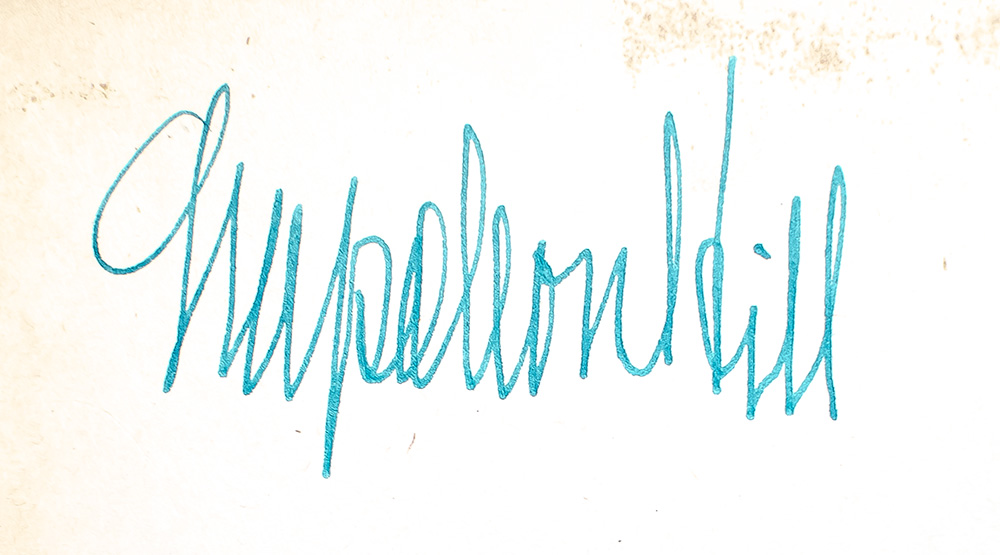 Napoleon Hill